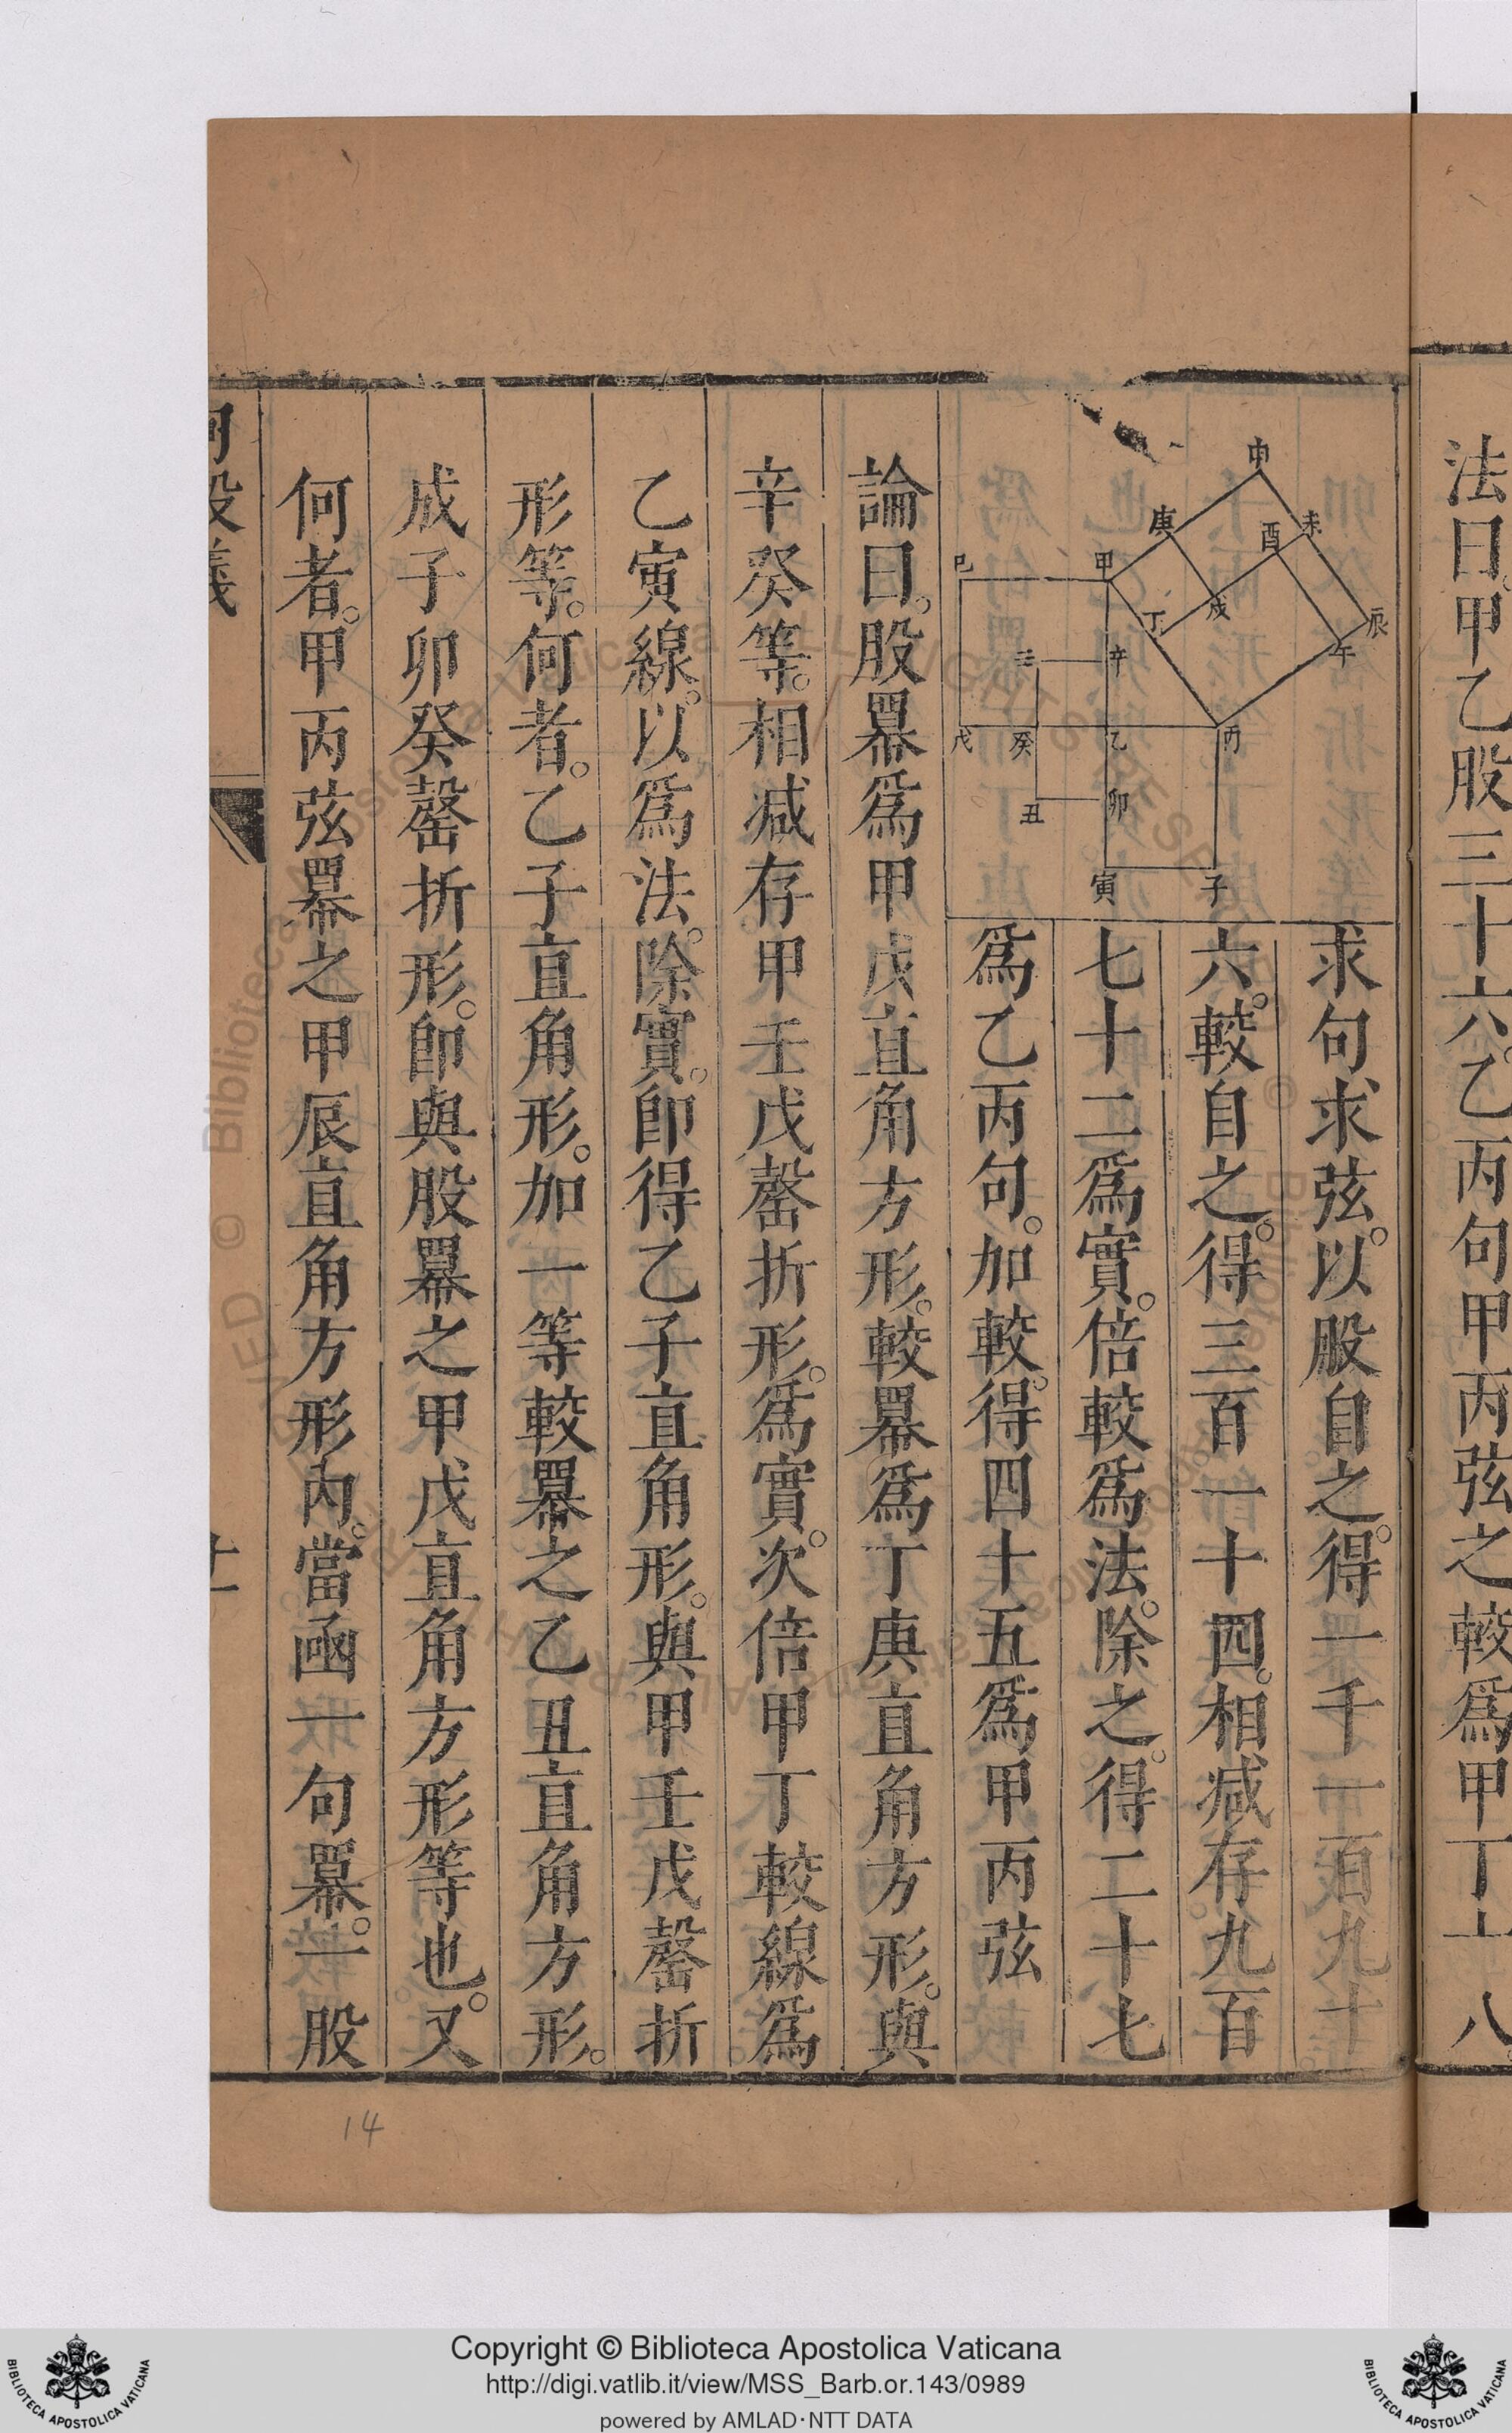 法曰。甲乙股三十六。乙丙句甲丙弦之較爲甲丁十八。
求句求弦。以股自之。得一千二百九十
六。較自之。得三百二十四。相减存九百
七十二爲實。倍較爲法。除之。得二十七
爲乙丙句。加較。得四十五爲甲丙弦
申
庚 酉 未
巳 甲
丁 戌 辰
壬 辛 午
戊 癸 乙 丙
丑 卯
寅 子
論曰。股羃爲甲戊直角方形。較羃爲丁庚直角方形。與
辛癸等。相减存甲壬戊罄折形。爲實。次倍甲丁較線爲
乙寅線。以爲法。除實。即得乙子直角形。與甲壬戊罄折
形等。何者。乙子直角形。加一等較羃之乙丑直角方形。
成子卯癸罄折形。即與股羃之甲戊直角方形等也。又
何者。甲丙弦羃之甲辰直角方形内。當函一句羃。一股
句股義
十一
14
© Biblioteca Apostolica Vaticana
Copyright © Biblioteca Apostolica Vaticana
http://digi.vatlib.it/view/MSS_Barb.or.143/0989
powered by AMLAD·NTT DATA
BIBLIOTECA APOSTOLICA VATICANA
BIBLIOTECA APOSTOLICA VATICANA